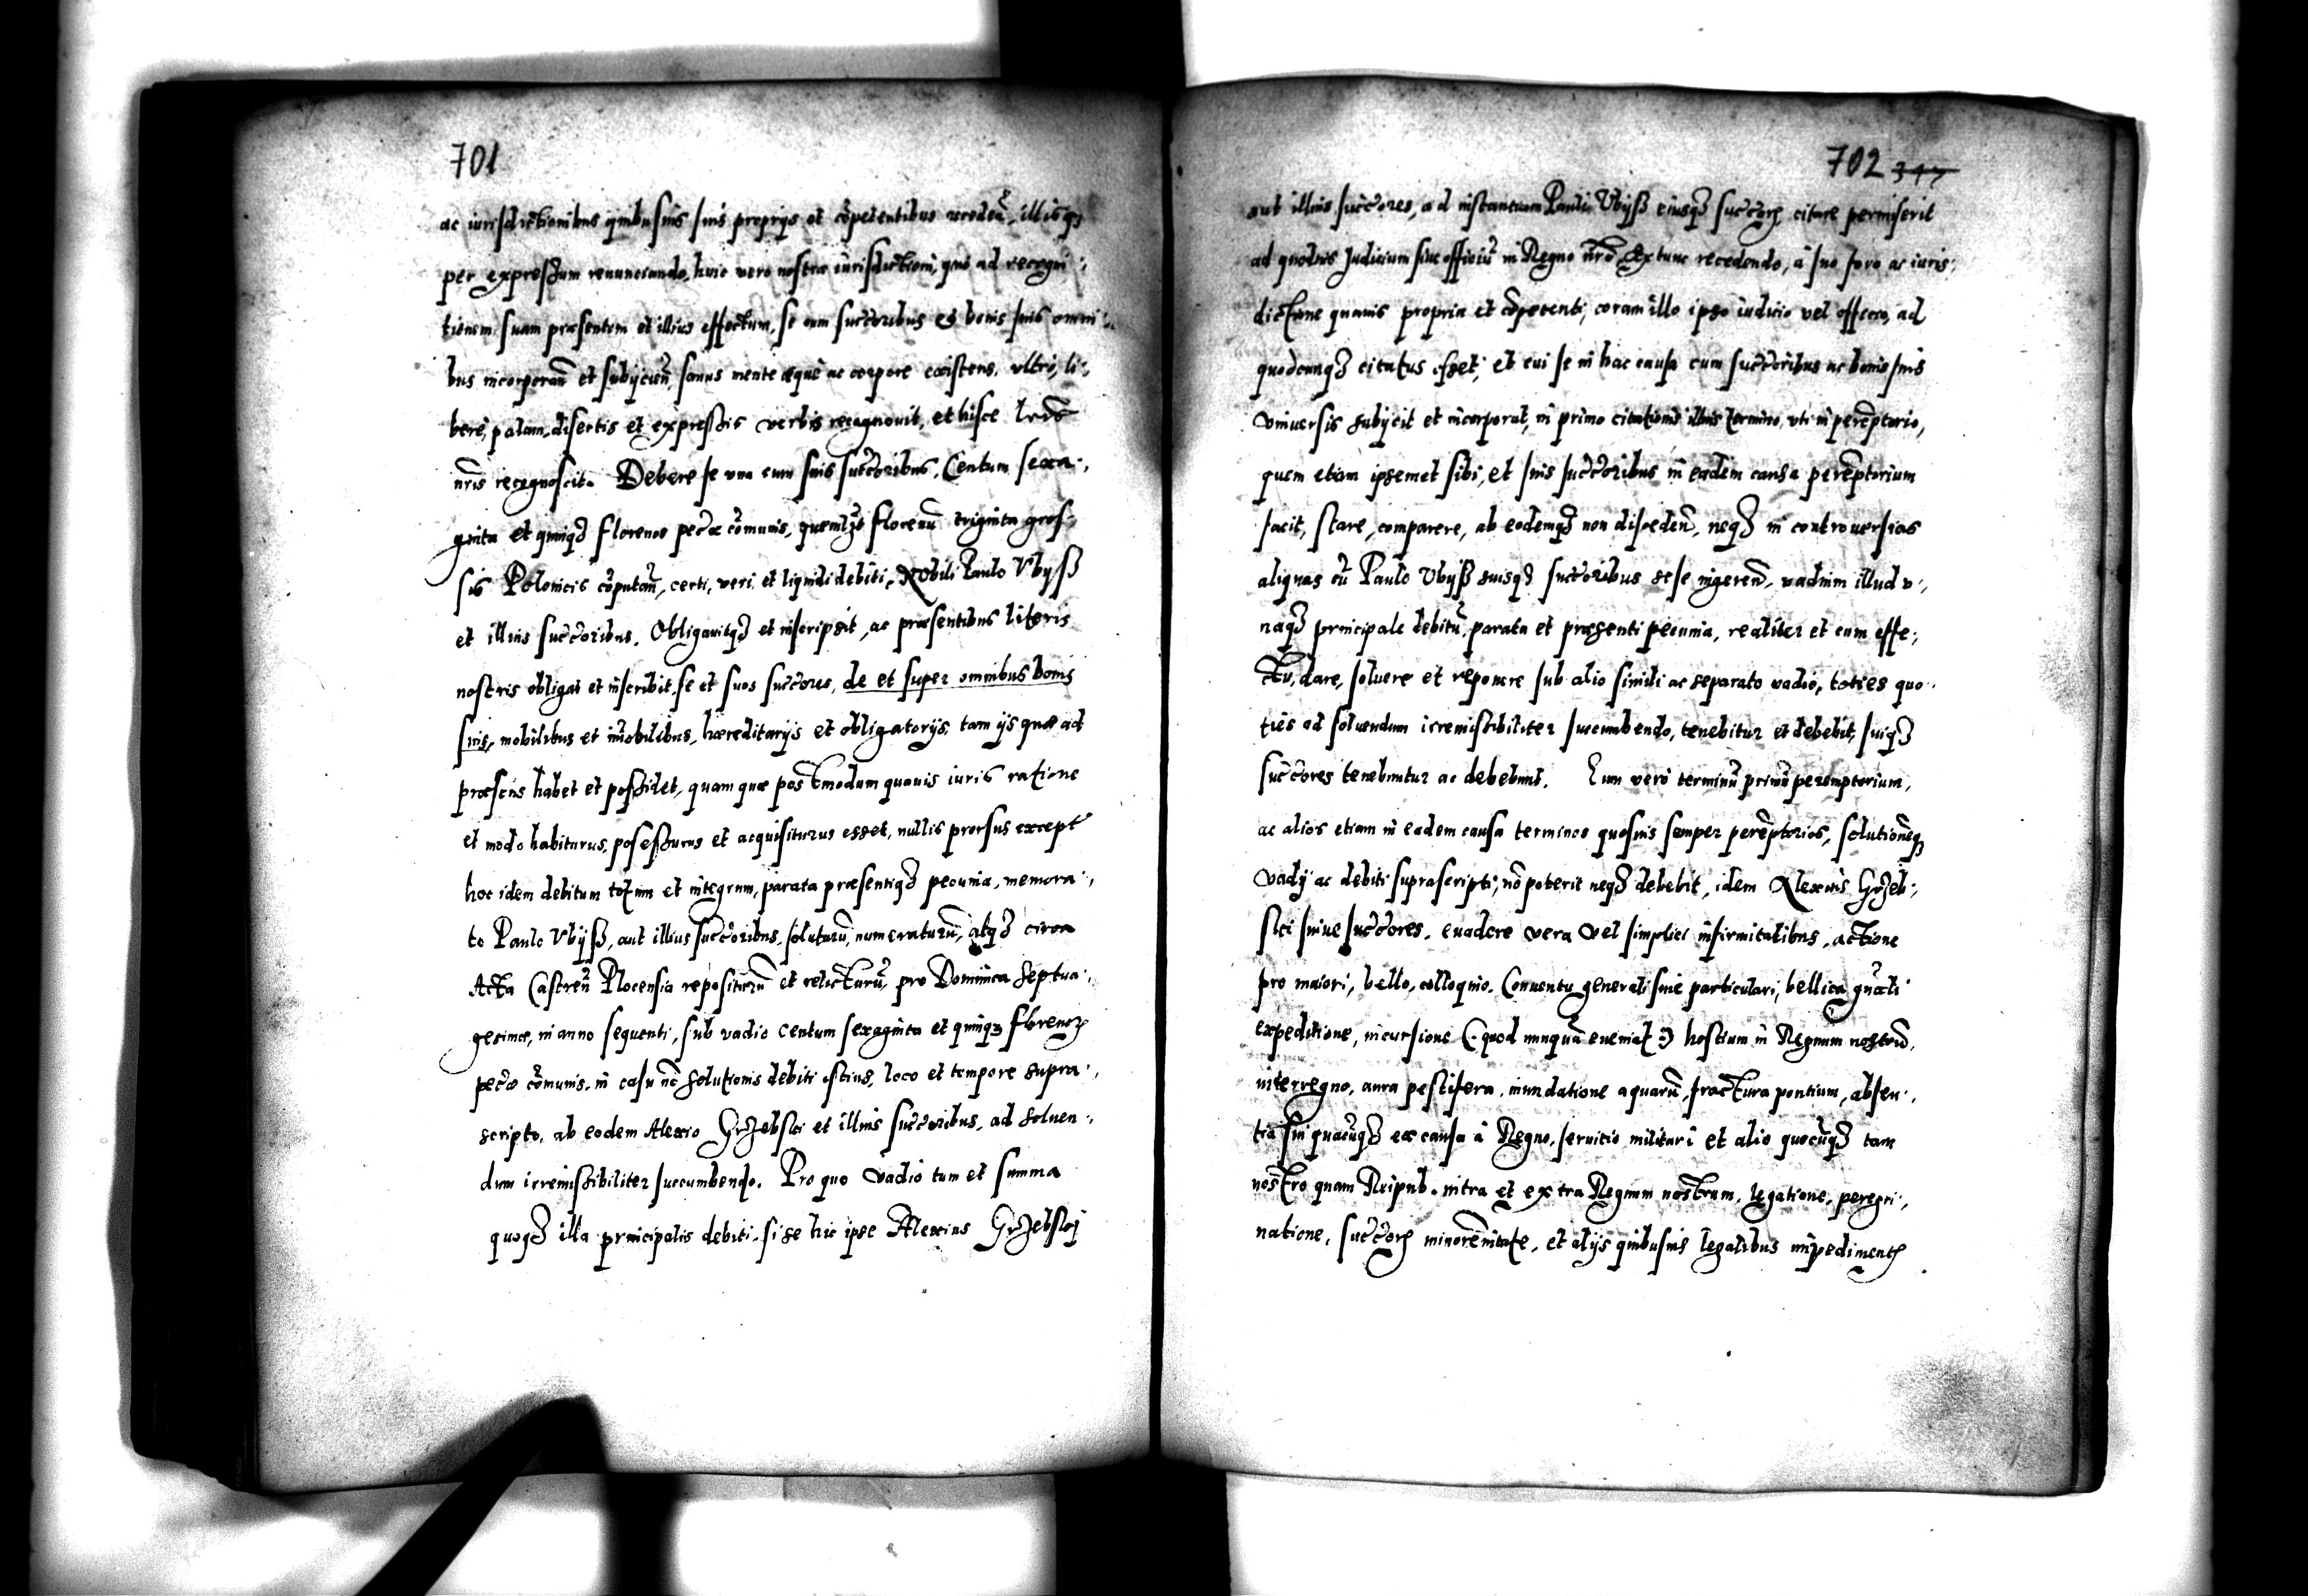 701
ac iurisdictionibus quibusuis suis proprijs et cōpetentibus recedeñ, illisq3
per expressum renunciando, huic vero nostræ iurisdictioni, quo ad recogni:,
tionem suam præsentem et illius effectum, se cum succ̃oribus et bonis suis omni:,
bus incorporañ et subijcieñ, sanus mente æque ac corpore existens, vltro, li:,
bere, palam, disertis et expressis verbis recognouit, et hisce lrĩs
nr̃is recognoscit. Debere se vna cum suis succ̃oribus, Centum sexa:,
ginta et quinq3 florenos pec̃æ cõmunis, quemlib3 florenũ triginta gros:,
sis Polonicis cõputañ, certi, veri et liquidi debiti, Nobili Paulo Vbysß
et illius succ̃oribus. Obligauitq3 et inscripsit, ac præsentibus literis
nostris obligat et inscribit, se et suos succ̃ores, de et super omnibus bonis
suis, mobilibus et im̃obilibus, hæreditarijs et obligatorijs, tam ijs quæ ad
præsens habet et possidet, quam quæ postmodum quouis iuris ratione
et modo habiturus, possessurus et acquisiturus esset, nullis prorsus except̃
hoc idem debitum totum et integrum, parata præsentiq3 pecunia, memora:,
to Paulo Vbijsß, aut illius succ̃oribus, soluturũ, numeraturũ, atq3 circa
Acta Castreñ Plocensia repositurũ et relicturũ, pro Dominica Septua:,
gesimæ, in anno sequenti, sub vadio centum sexaginta et quinq3 florenoꝝ
pec̃æ cõmunis, in casu nõ solutionis debiti istius, loco et tempore supra:,
scripto, ab eodem Alexio Grzebski et illius succ̃oribus, ad soluen:,
dum irremissibiliter succumbendo. Pro quo vadio tum et summa
quoq3 illa principalis debiti, si se hic ipse Alexius Grzebskj
702 347
aut illius succ̃ores, ad instantiam Pauli Vbijsß eiusq3 succ̃oꝝ citare permiserit
ad quoduis Judicium siue officiũ in Regno nr̃o Ex tunc recedendo, à suo foro ac iuris:,
dictione quauis propria et cõpetenti, coram illo ipso iudicio vel officio, ad
quodcunq3 citatus esset, et cui se in hac causa cum succ̃oribus ac bonis suis
vniuersis subijcit et incorporat, in primo citationis illius termino, vti in perẽptorio,
quem etiam ipsemet sibi, et suis succ̃oribus in eadem causa perẽptorium
facit, stare, comparere, ab eodemq3 non discedeñ, neq3 in controuersias
aliquas cũ Paulo Vbysß suisq3 succ̃oribus sese ingereñ, vadium illud v:,
naq3 principale debitũ, parata et præsenti pecunia, realiter et cum effe:,
ctu, dare, soluere et reponere sub alio simili ac separato vadio, toties quo:,
ties ad soluendum irremissibiliter succumbendo, tenebitur et debebit, suiq3
succ̃ores tenebuntur ac debebunt. Eum verò terminũ primũ peremptorium,
ac alios etiam in eadem causa terminos quosuis semper perẽptorios, solutionẽq3
vadij ac debiti suprascripti, nõ poterit neq3 debebit, idem Alexius Grzeb:,
ski suiue succ̃ores, euadere vera vel simplici infirmitatibus, actione
pro maiori, bello, colloquio, Conuentu generali siue particulari, bellica gñali
expeditione, incursione (: quod nunquã eueniat :) hostium in Regnum nostrũ,
interregno, aura pestifera, inundatione aquarũ, fractura pontium, absen:,
tia sui quacũq3 ex causa à Regno, seruitio militari et alio quocũq3 tam
nostro quam Reipub. intra et extra Regnum nostrum, legatione, peregri:,
natione, succ̃oꝝ minorẽnitate, et alijs quibusuis legalibus impedimentꝭ